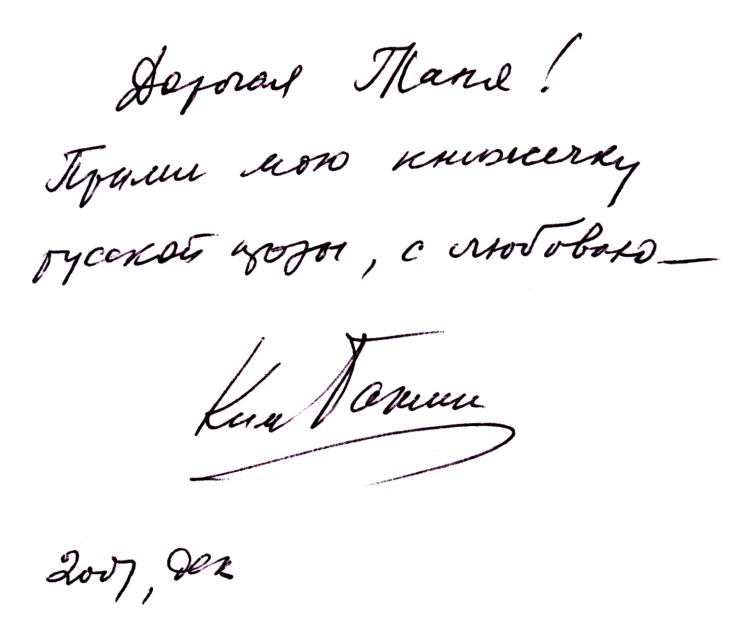 Дорогая Таня!
Прими мою книжечку
русской прозы, с любовью —
Ким Бакши
2007, дек